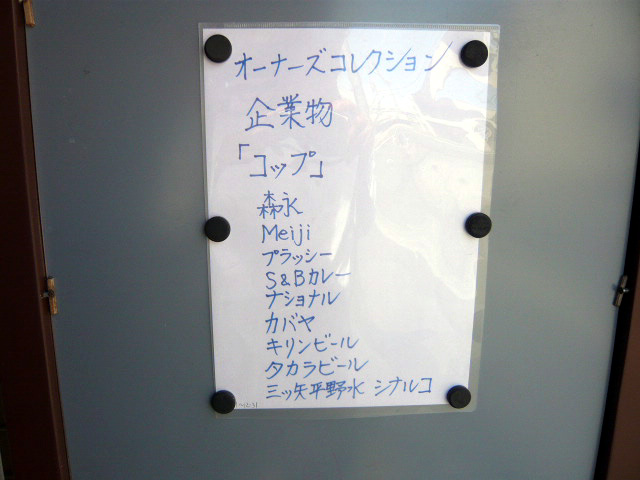 オーナーズコレクション
企業物
「コップ」
森永
Meiji
プラッシー
S&Bカレー
ナショナル
カバヤ
キリンビール
タカラビール
三ッ矢平野水 シナルコ